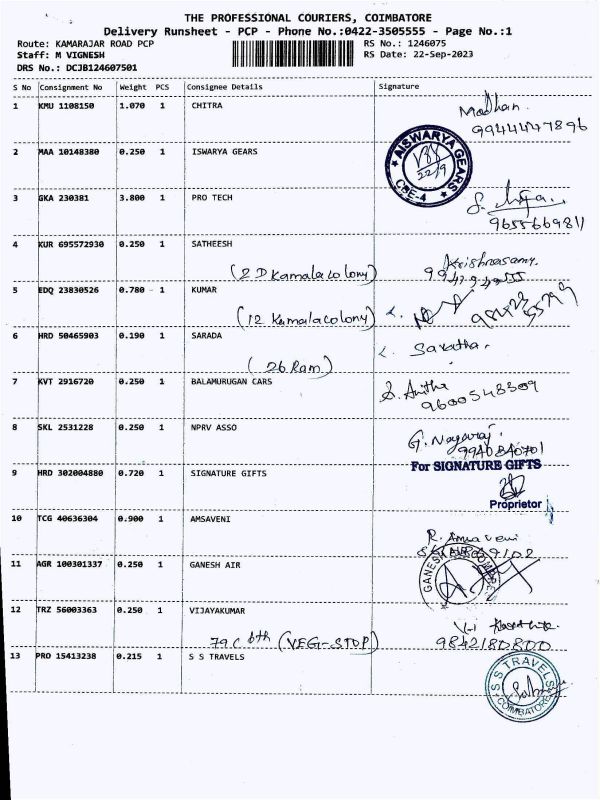 THE PROFESSIONAL COURIERS, COIMBATORE
Delivery Runsheet - PCP - Phone No.:0422-3505555 - Page No.:1
Route: KAMARAJAR ROAD PCP RS No.: 1246075
Staff: M VIGNESH RS Date: 22-Sep-2023
DRS No.: DCJB124607501
S No Consignment No Weight PCS Consignee Details Signature
1 KMU 1108150 1.070 1 CHITRA Madhan.
9944447896
2 MAA 10148380 0.250 1 ISWARYA GEARS
AISWARYA GEARS
22/9
CBE-4
3 GKA 230381 3.800 1 PRO TECH
9655669811
4 KUR 695572930 0.250 1 SATHEESH
(2 D Kamala colony) Krishnasamy.
5 EDQ 23830526 0.780 - 1 KUMAR
(12 Kamala colony)
6 HRD 50465903 0.190 1 SARADA
(26 Ram) Saratha.
7 KVT 2916720 0.250 1 BALAMURUGAN CARS S. Anitha
9600548309
8 SKL 2531228 0.250 1 NPRV ASSO G. Nagaraj.
9940840701
For SIGNATURE GIFTS
9 HRD 302004880 0.720 1 SIGNATURE GIFTS
Proprietor
10 TCG 40636304 0.900 1 AMSAVENI
R. Amsaveni
11 AGR 100301337 0.250 1 GANESH AIR
GANESH AIR
12 TRZ 56003363 0.250 1 VIJAYAKUMAR
79 C bth (VEG-STOP) 9842180800
13 PRO 15413238 0.215 1 S S TRAVELS
S S TRAVELS
COIMBATORE